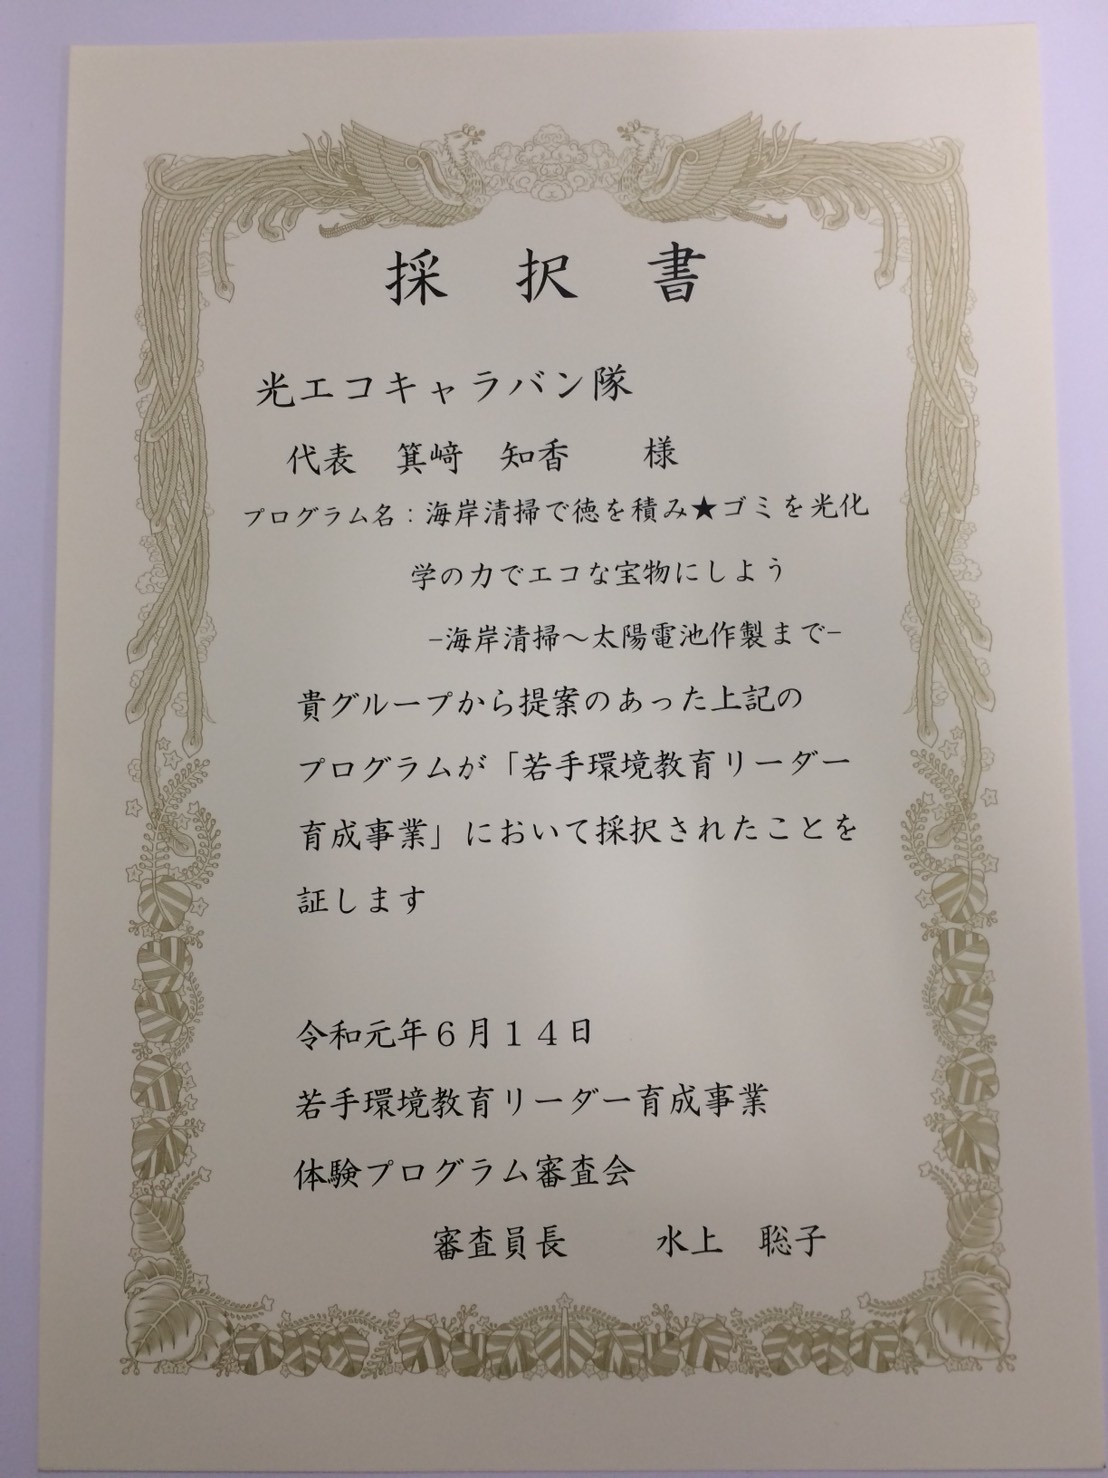 採　択　書
光エコキャラバン隊
代表　箕﨑　知香　　様
プログラム名：海岸清掃で徳を積み★ゴミを光化
学の力でエコな宝物にしよう
−海岸清掃～太陽電池作製まで−
貴グループから提案のあった上記の
プログラムが「若手環境教育リーダー
育成事業」において採択されたことを
証します
令和元年６月１４日
若手環境教育リーダー育成事業
体験プログラム審査会
審査員長　　水上　聡子